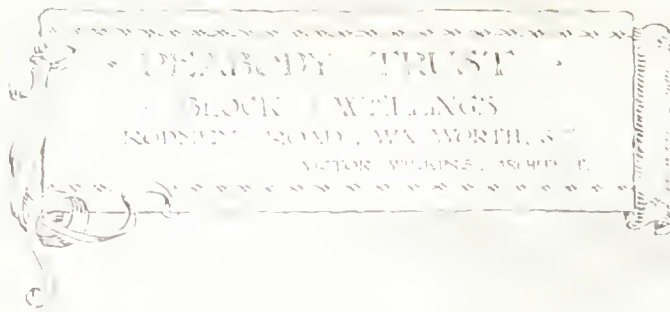 · PEABODY TRUST ·
BLOCK DWELLINGS
RODNEY ROAD, WALWORTH, S.E.
VICTOR WILKINS, ARCHITECT.